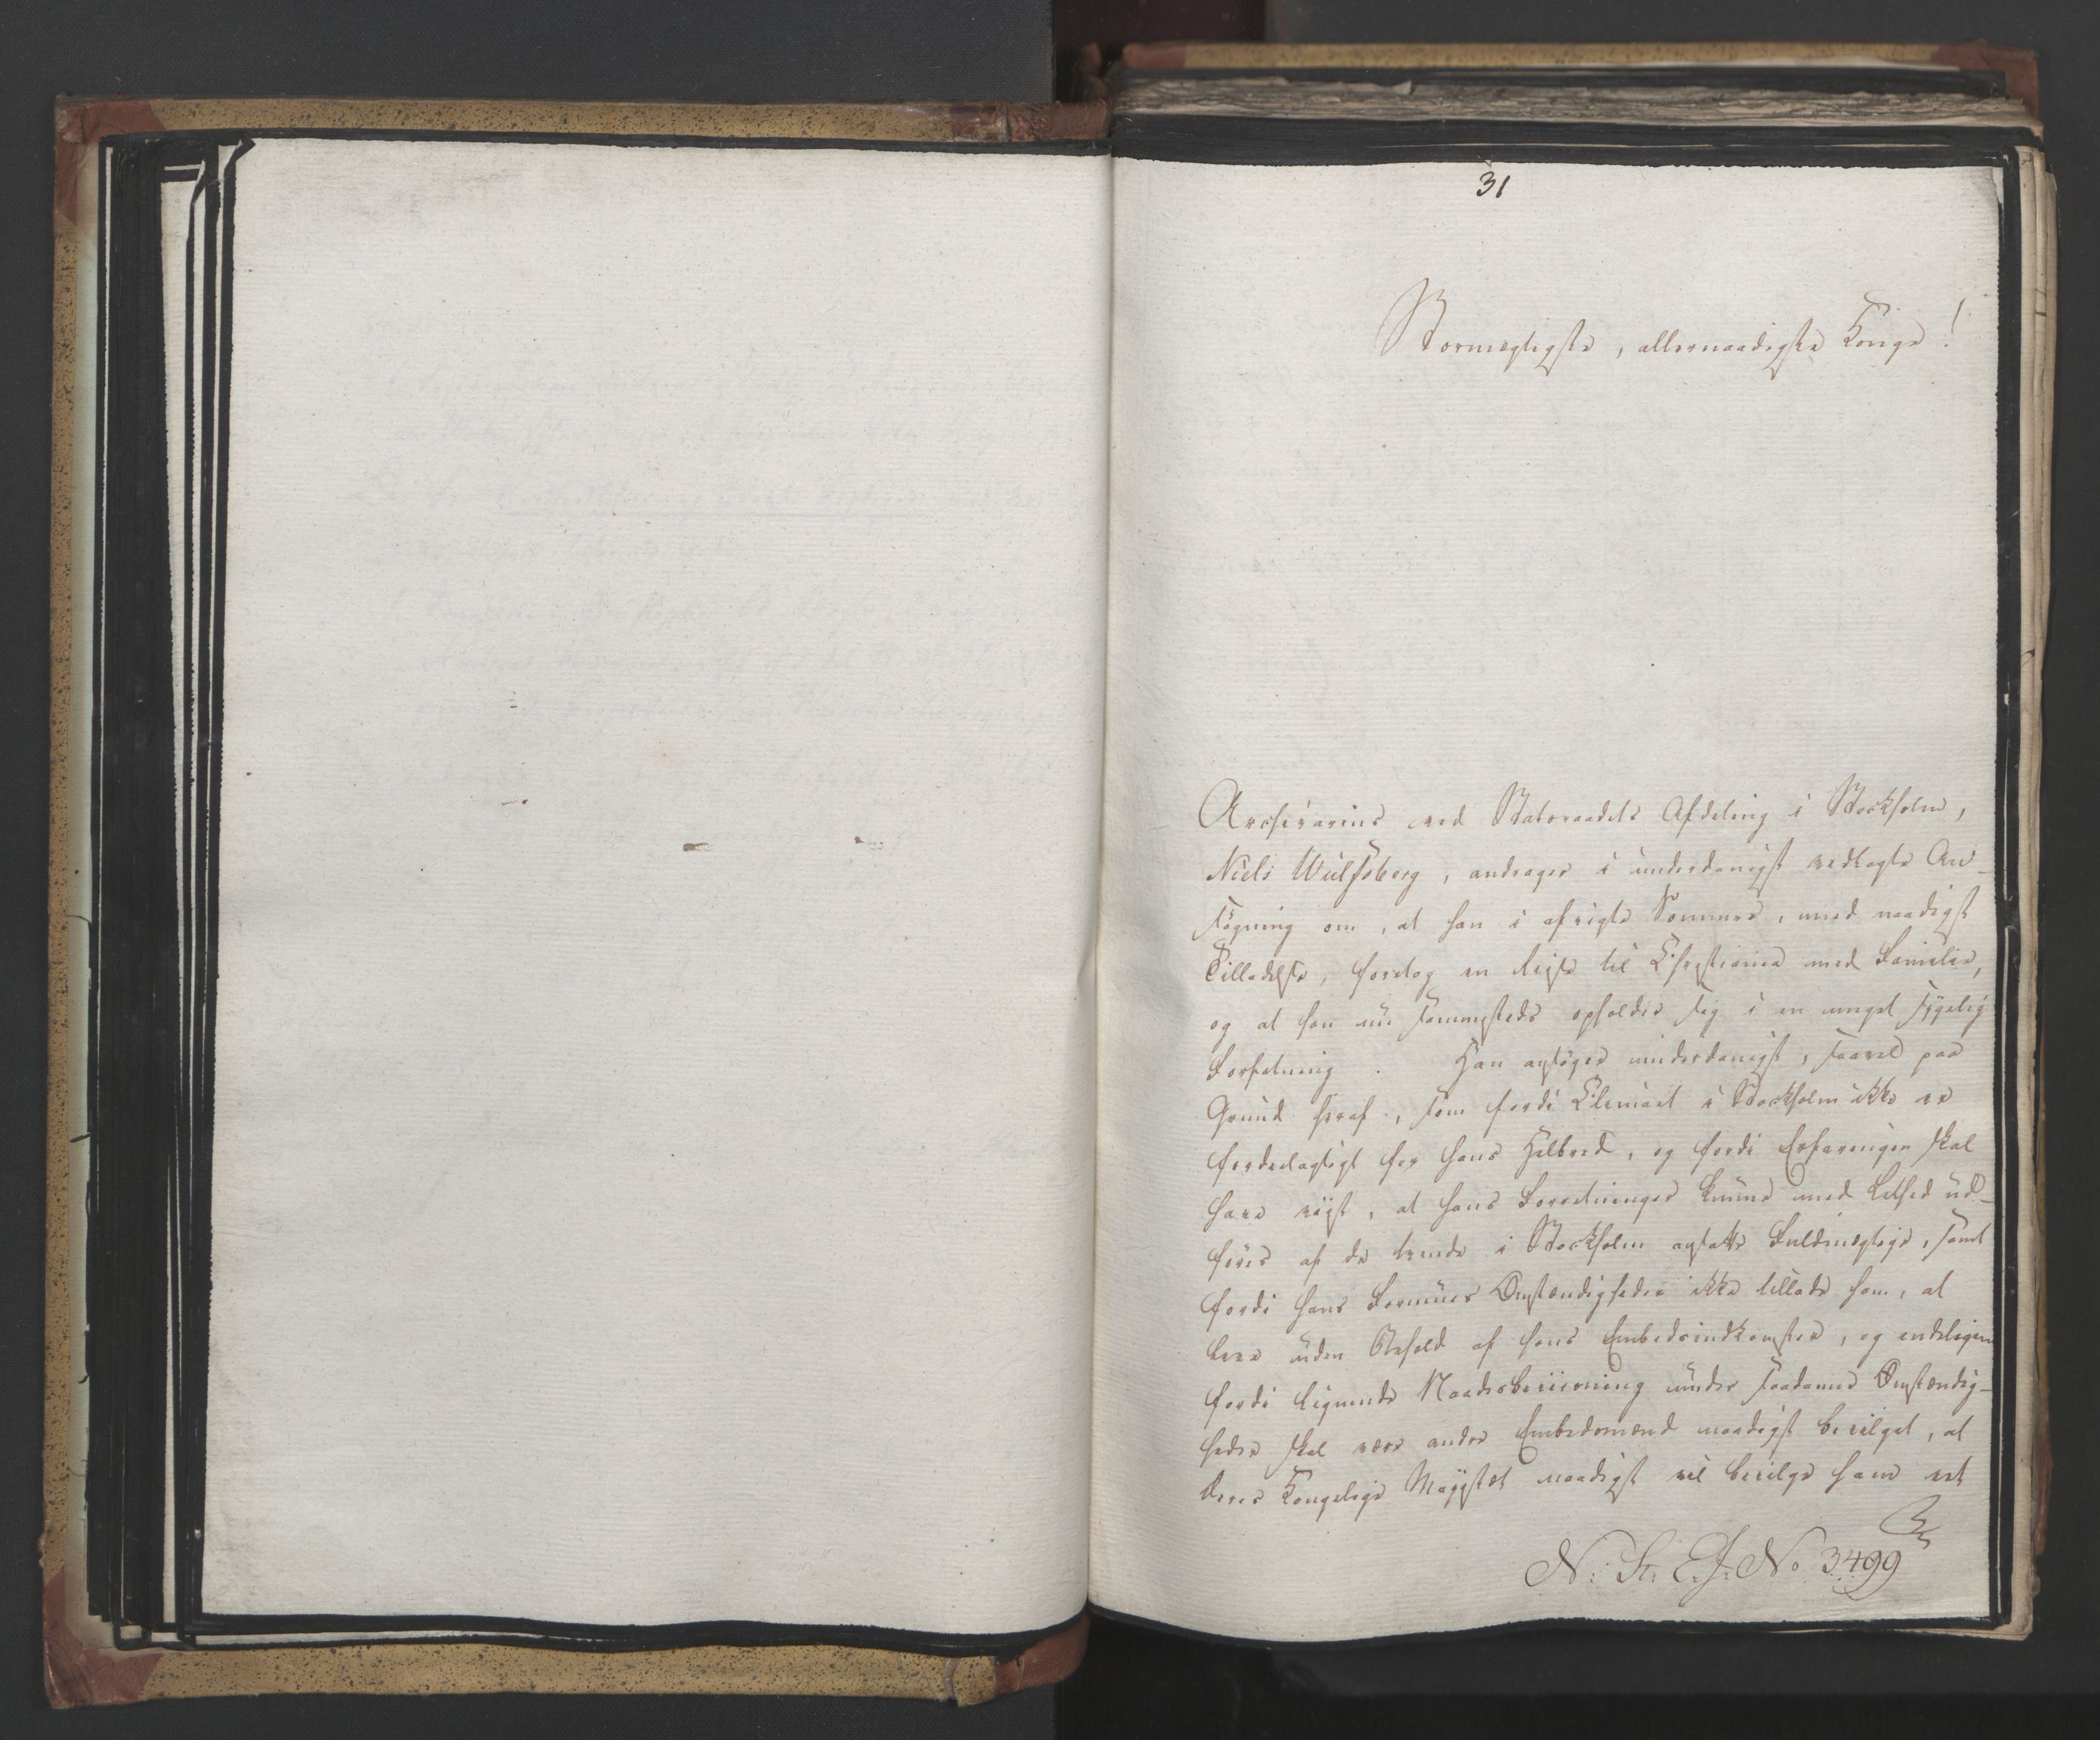 31
Stormægtigste, allernaadigste Konge!
Archivarius ved Statsraadets Afdeling i Stockholm,
Niels Wulfsberg, andrager i underdanigst vedlagte An-
søgning om, at han i afvigte Sommer, med naadigst
Tilladelse, foretog en Reise til Christiania med Familie,
og at han nu sammesteds opholder sig i en meget sygelig
Forfatning. Han ansøger underdanigst, saavel paa
Grund heraf, som fordi Climaet i Stockholm ikke er
fordeelagtigt for hans Helbred, og fordi Erfaringen skal
have viist, at hans Forretninger kunne med Lethed ud-
føres af de tvende i Stockholm ansatte Fuldmægtige, samt
fordi hans Formues Omstændigheder ikke tillade ham, at
leve uden Behold af hans Embedsindkomster, og endeligen
fordi lignende Naadesbeviisning under saadanne Omstændig-
heder skal være andre Embedsmænd naadigst bevilget, at
Deres Kongelige Majestæt naadigst vil bevilge ham et
N: St: E. J: No 3499